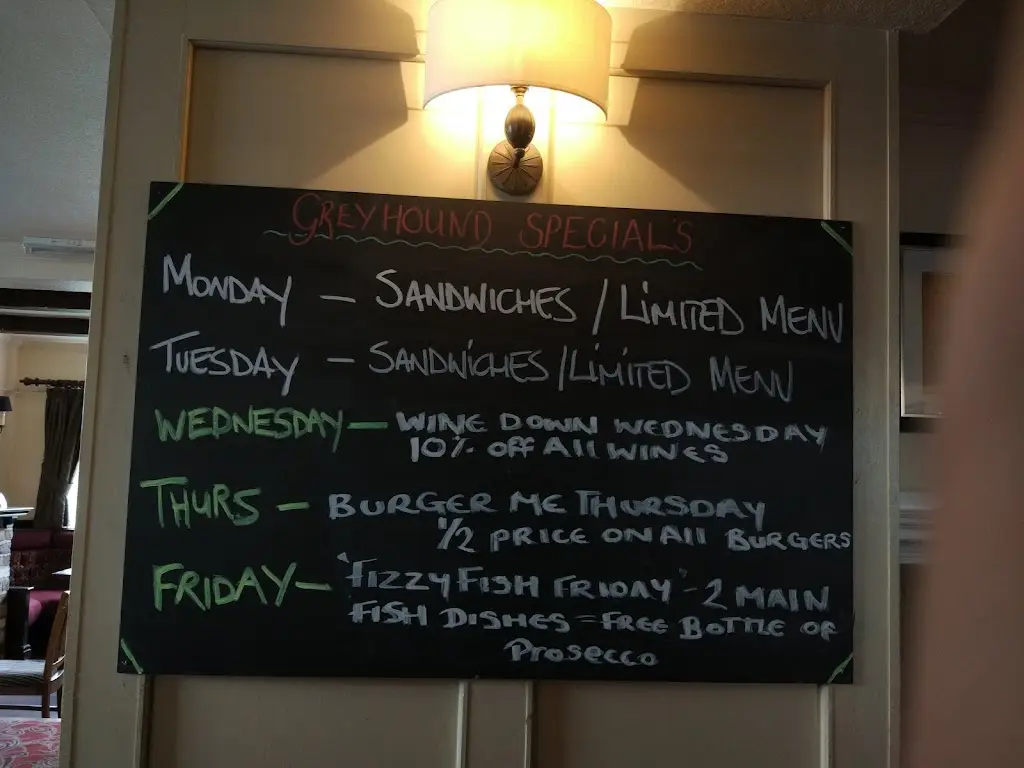 GREYHOUND SPECIALS
MONDAY – SANDWICHES / LIMITED MENU
TUESDAY – SANDWICHES / LIMITED MENU
WEDNESDAY – WINE DOWN WEDNESDAY
10% OFF All WINES
THURS – BURGER ME THURSDAY
1/2 PRICE ON All BURGERS
FRIDAY – "FIZZY FISH FRIDAY" - 2 MAIN
FISH DISHES = FREE BOTTLE OF
Prosecco